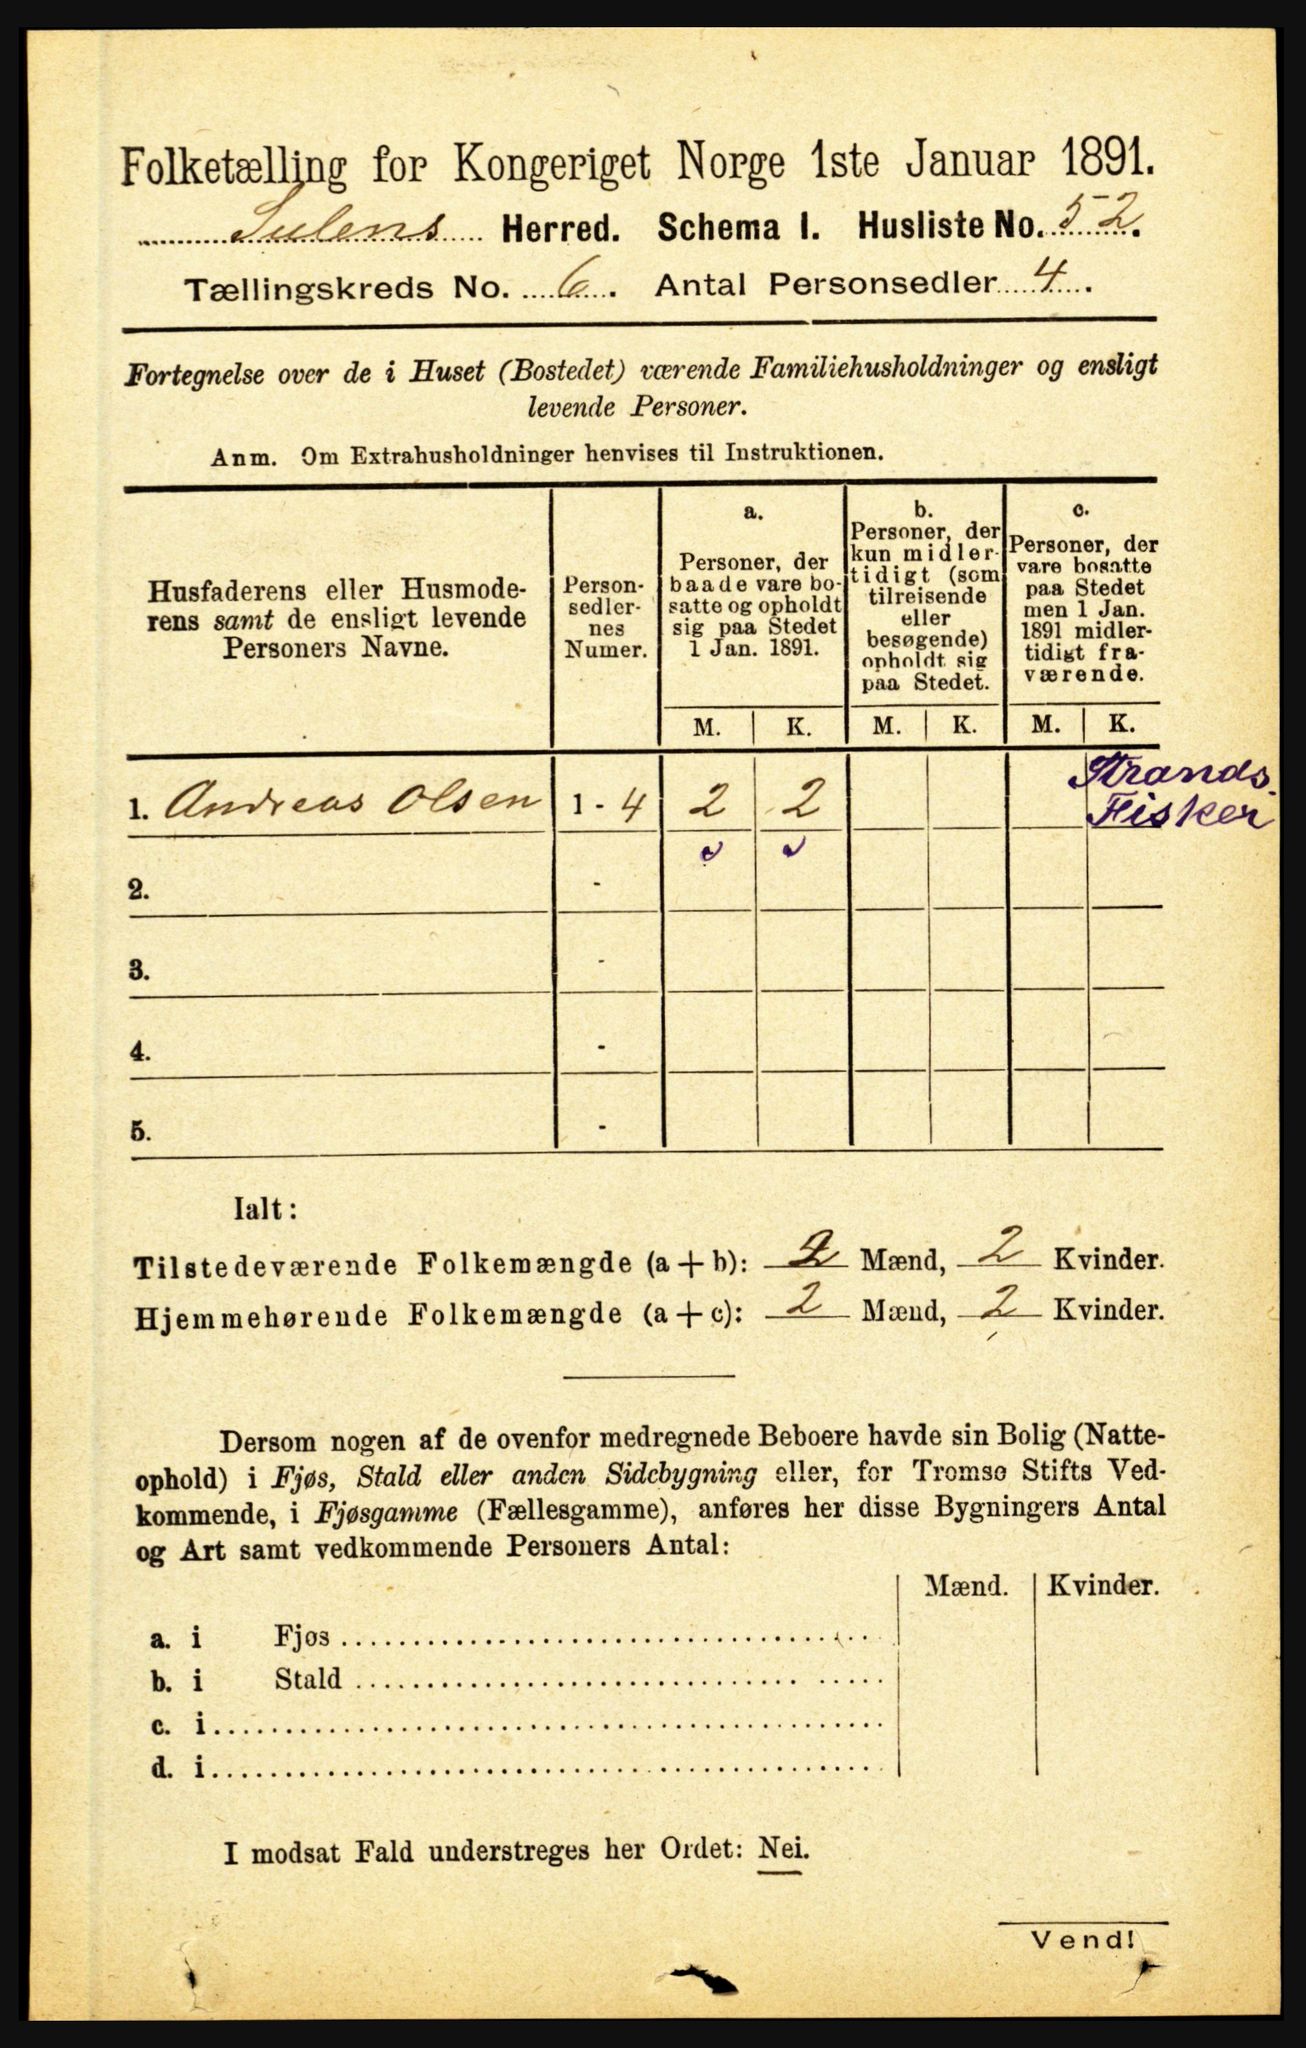 Folketælling for Kongeriget Norge 1ste Januar 1891.
Sulens Herred. Schema I. Husliste No. 52.
Tællingskreds No. 6. Antal Personsedler 4.
Fortegnelse over de i Huset (Bostedet) værende Familiehusholdninger og ensligt
levende Personer.
Anm. Om Extrahusholdninger henvises til Instruktionen.
Husfaderens eller Husmode-
rens samt de ensligt levende
Personers Navne.
Person-
sedler-
nes
Numer.
a.
Personer, der
baade vare bo-
satte og opholdt
sig paa Stedet
1 Jan. 1891.
b.
Personer, der
kun midler-
tidigt (som
tilreisende
eller
besøgende)
opholdt sig
paa Stedet.
c.
Personer, der
vare bosatte
paa Stedet
men 1 Jan.
1891 midler-
tidigt fra-
værende.
M. K. M. K. M. K.
1. Andreas Olsen 1 - 4 2 2 Strands.
Fisker
2. -
3. -
4. -
5. -
Ialt:
Tilstedeværende Folkemængde (a + b): 2 Mænd, 2 Kvinder.
Hjemmehørende Folkemængde (a + c): 2 Mænd, 2 Kvinder.
Dersom nogen af de ovenfor medregnede Beboere havde sin Bolig (Natte-
ophold) i Fjøs, Stald eller anden Sidebygning eller, for Tromsø Stifts Ved-
kommende, i Fjøsgamme (Fællesgamme), anføres her disse Bygningers Antal
og Art samt vedkommende Personers Antal:
Mænd. Kvinder.
a. i Fjøs
b. i Stald
c. i
d. i
I modsat Fald understreges her Ordet: Nei.
Vend!